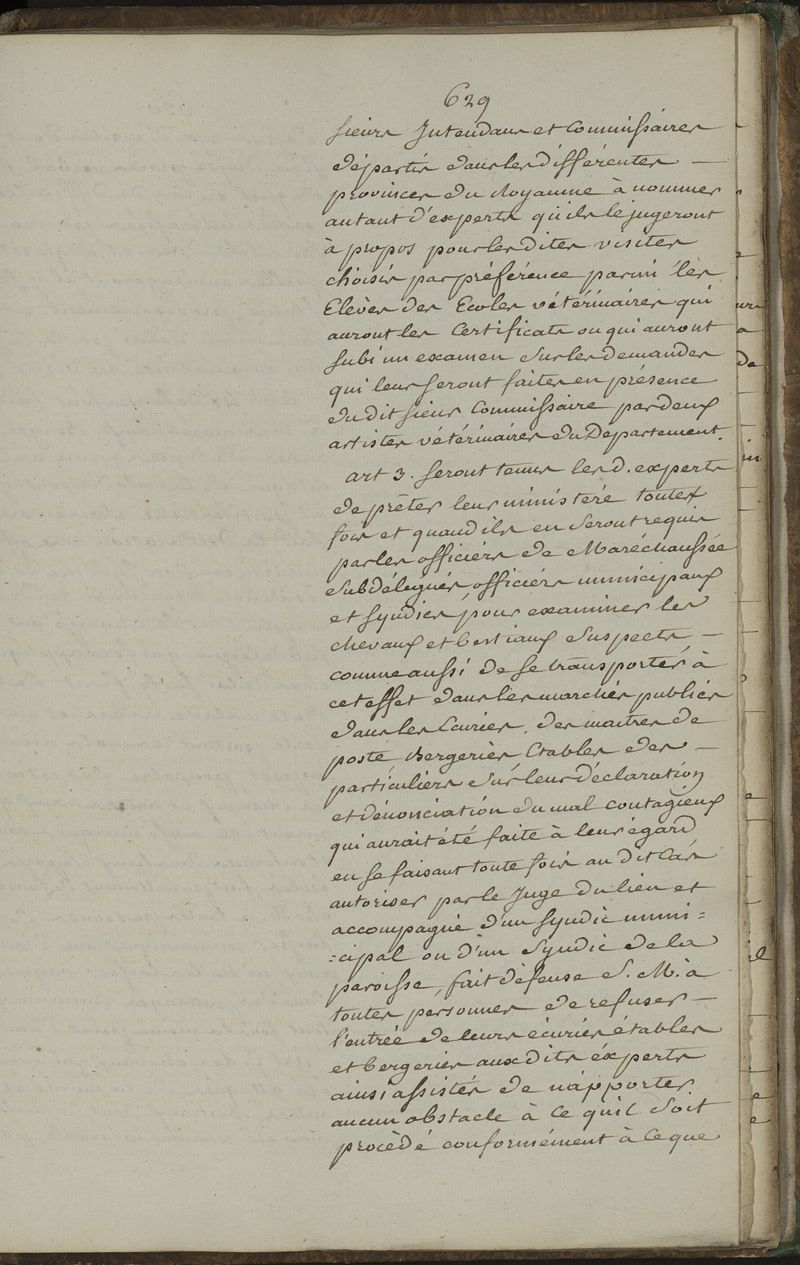 629
sieurs Intendans et Commissaires
départis dans les différentes —
provinces du Royaume à nommer
autant d'experts qu'ils le jugeront
à propos pour les dites visites
choisis par préférence parmi les
Eleves des Ecoles vétérinaires qui
auront les Certificats ou qui auront
subi un examen sur les demandes
qui leur seront faites en présence
du dit sieur Commissaire par deux
artistes vétérinaires du Departement.
art 3. seront tenus les d. experts
de prêter leur ministère toutes
fois et quand ils en seront requis
par les officiers de Maréchaussée
subdélégués officiers municipaux
et syndics, pour examiner les
chevaux et bestiaux suspects —
comme aussi de se transporter à
cet effet dans les marchés publics
dans les Ecuries, des maitres de
poste Bergeries Etables des —
particuliers sur leur déclaration
et dénonciation du mal contagieux
qui aurait été faite à leur égard
en se faisant toute fois au dit Cas
autoriser par le Juge du lieu et
accompagné d'un syndic muni=
=cipal ou d'un Syndic de la
paroisse, fait défense S. M. à
toutes personnes de refuser —
l'entrée de leurs écuries étables
et bergeries aux dits experts
ainsi assistés de n'apporter
aucun obstacle à ce qu'il soit
procédé conformément à ce que